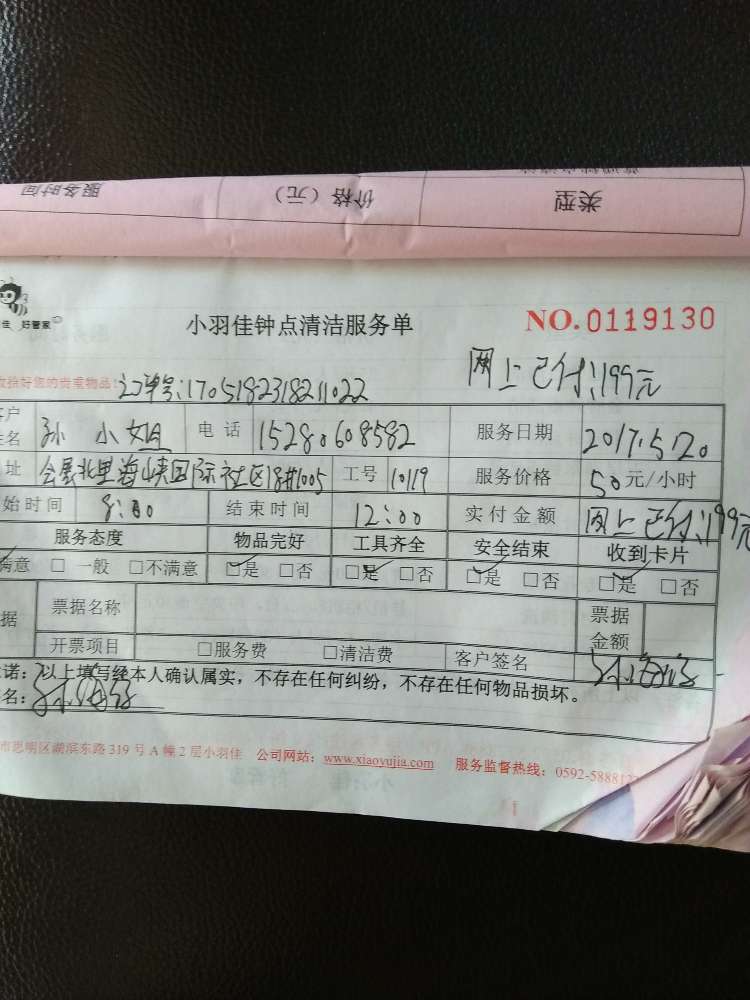 服务时间 价格（元） 类型
佳 好管家
小羽佳钟点清洁服务单
NO.0119130
网上已付:199元
收拾好您的贵重物品!订单号:1705182318211022
客户姓名 孙小姐 电话 15280608582 服务日期 2017.5.20
址 会展北里海峡国际社区18#1005 工号 10119 服务价格 50元/小时
始时间 8:00 结束时间 12:00 实付金额 网上已付:199元
服务态度 物品完好 工具齐全 安全结束 收到卡片
满意 □一般 □不满意 □是 □否 □是 □否 □是 □否 □是 □否
据 票据名称 票据金额
开票项目 □服务费 □清洁费 客户签名
诺：以上填写经本人确认属实，不存在任何纠纷，不存在任何物品损坏。
名：
市思明区湖滨东路319号A幢2层小羽佳 公司网站：www.xiaoyujia.com 服务监督热线：0592-58881